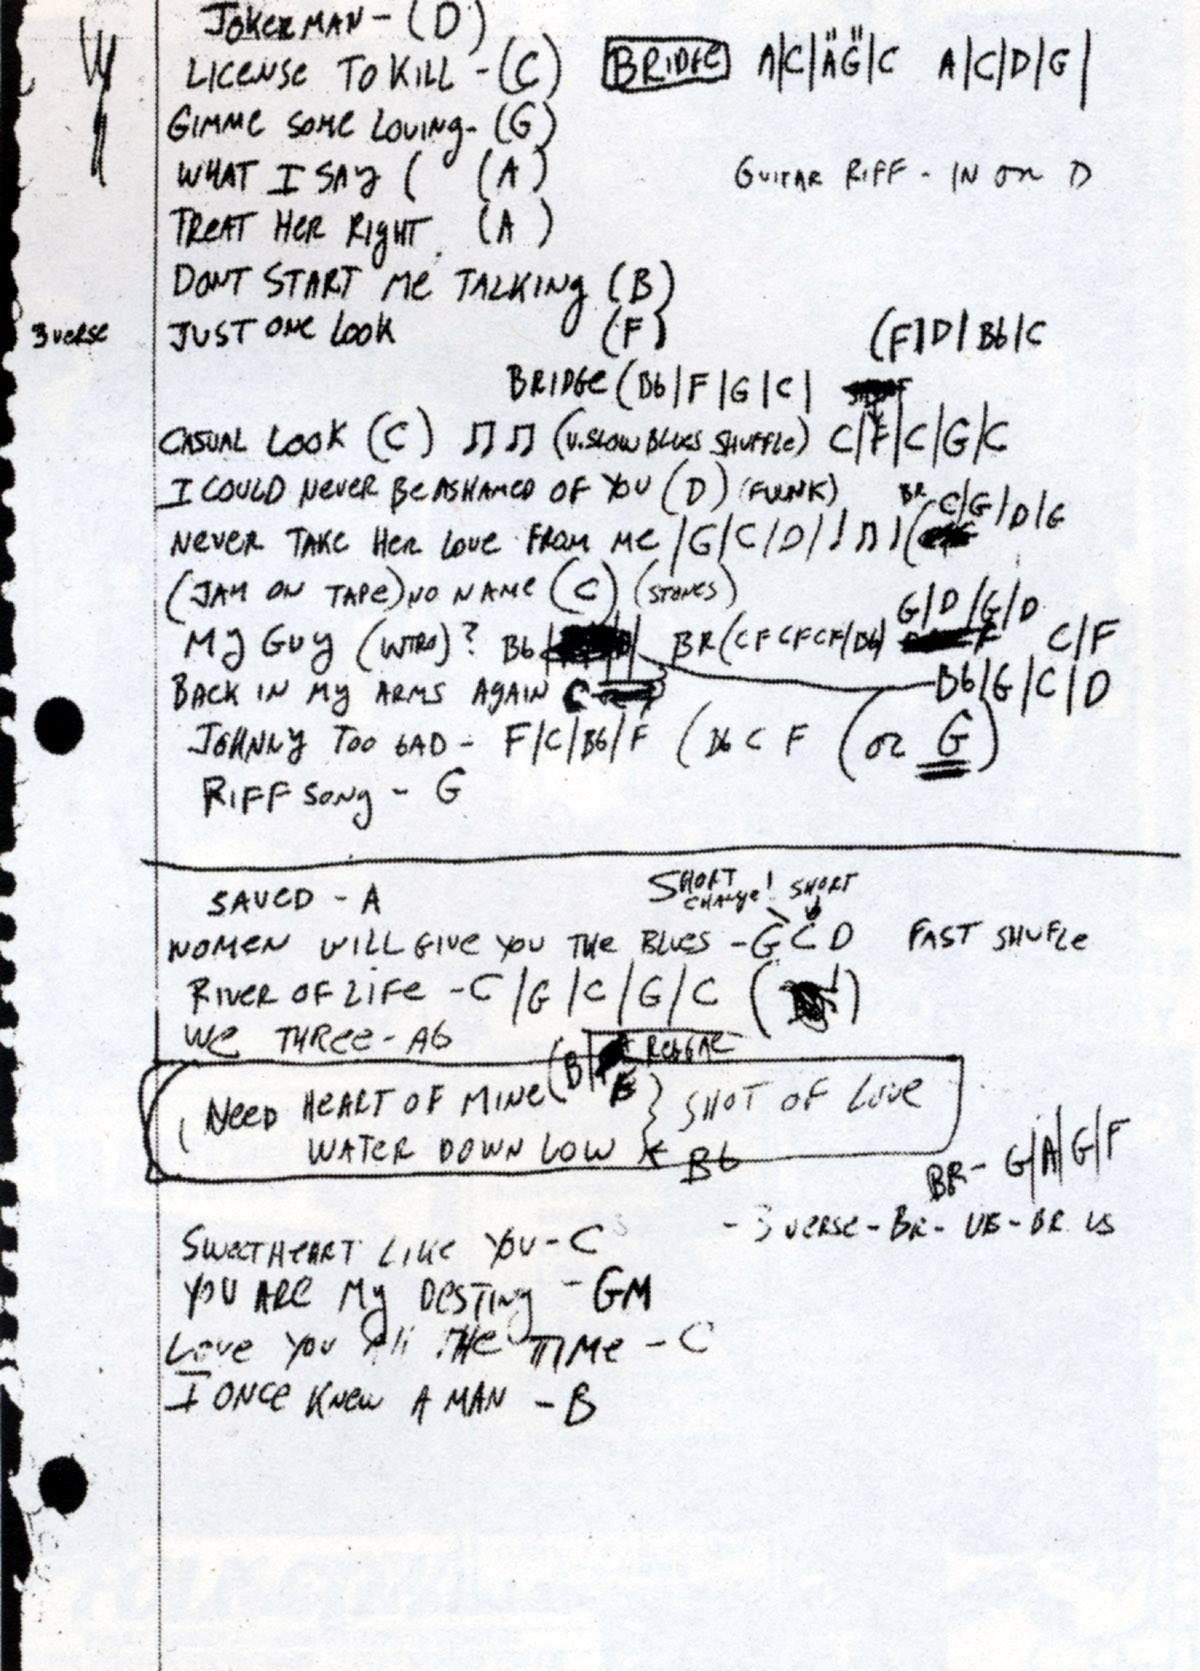 JOKERMAN - (D)
LICENSE TO KILL - (C) BRIDGE A|C|ÄG̈|C A|C|D|G|
GIMME SOME LOVING - (G)
WHAT I SAY ( (A) GUITAR RIFF - IN ON D
TREAT HER RIGHT (A)
DONT START ME TALKING (B)
3 VERSE JUST ONE LOOK (F) (F|D|Bb|C
BRIDGE (Bb|F|G|C|
CASUAL LOOK (C) ♫ ♫ (V. SLOW BLUES SHUFFLE) C|F|C|G|C
I COULD NEVER BE ASHAMED OF YOU (D) (FUNK) BR C|G|D|G
NEVER TAKE HER LOVE FROM ME |G|C|D|
(JAM ON TAPE) NO NAME (C) (STONES)
G|D|G|D
MY GUY (INTRO)? Bb BR (CF CF CF|Db) C|F
BACK IN MY ARMS AGAIN C Bb|G|C|D
JOHNNY TOO BAD - F|C|Bb|F (Bb C F (OR G)
RIFF SONG - G
SHORT CHANGE! SHORT
SAVED - A
WOMEN WILL GIVE YOU THE BLUES - G C D FAST SHUFLE
RIVER OF LIFE - C|G|C|G|C
WE THREE - Ab
REGGAE
NEED HEART OF MINE (B| E } SHOT OF LOVE
WATER DOWN LOW Bb
BR - G|A|G|F
- 3 VERSE - BR - VS - BR VS
SWEETHEART LIKE YOU - C
YOU ARE MY DESTINY - GM
LOVE YOU All THE TIME - C
I ONCE KNEW A MAN - B